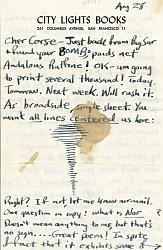 Aug 28
CITY LIGHTS BOOKS
261 COLUMBUS AVENUE, SAN FRANCISCO 11
Cher Corso - Just back from Big Sur
& found your BOMB:
! OK - am going
to print several thousand! Today.
Tomorrow. Next week. Will rush it.
As broadside, single sheet. You
want all lines centered, as here:
Right? If not let me know airmail.
One question in copy: what is
? Doesn't mean anything to me, but that's
no sign.... Great poem! In spite
of fact that it exhibits some